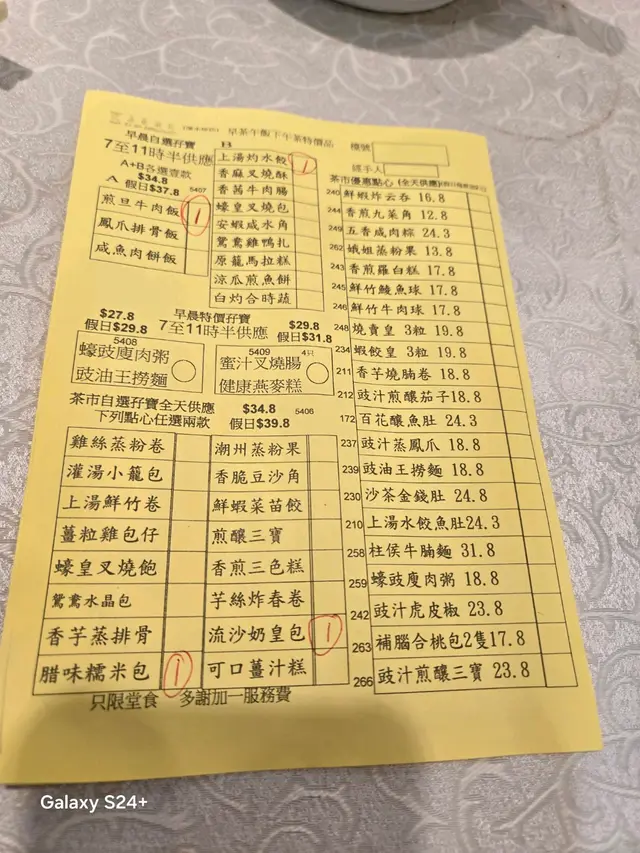 早茶午飯下午茶特價品
早晨自選孖寶
7至11時半供應
A+B各選壹款
$34.8
A 假日$37.8 5407
煎旦牛肉飯 1
鳳爪排骨飯
咸魚肉餅飯
B
上湯灼水餃 1
香麻叉燒酥
香茜牛肉腸
蠔皇叉燒包
安蝦咸水角
鴛鴦雞鴨扎
原籠馬拉糕
涼瓜煎魚餅
白灼合時蔬
檯號
經手人
茶市優惠點心 (全天供應)
240 鮮蝦炸云吞 16.8
244 香煎九菜角 12.8
249 五香咸肉粽 24.3
262 娥姐蒸粉果 13.8
243 香煎羅白糕 17.8
245 鮮竹鯪魚球 17.8
246 鮮竹牛肉球 17.8
248 燒賣皇 3粒 19.8
234 蝦餃皇 3粒 19.8
211 香芋燒腩卷 18.8
212 豉汁煎釀茄子18.8
172 百花釀魚肚 24.3
237 豉汁蒸鳳爪 18.8
239 豉油王撈麵 18.8
230 沙茶金錢肚 24.8
210 上湯水餃魚肚24.3
258 柱侯牛腩麵 31.8
259 蠔豉廋肉粥 18.8
242 豉汁虎皮椒 23.8
263 補腦合桃包2隻17.8
266 豉汁煎釀三寶 23.8
$27.8 早晨特價孖寶 $29.8
假日$29.8 7至11時半供應 假日$31.8
5408
蠔豉廋肉粥
豉油王撈麵
5409 4只
蜜汁叉燒腸
健康燕麥糕
茶市自選孖寶全天供應 $34.8 5406
下列點心任選兩款 假日$39.8
雞絲蒸粉卷
灌湯小籠包
上湯鮮竹卷
薑粒雞包仔
蠔皇叉燒飽
鴛鴦水晶包
香芋蒸排骨
腊味糯米包 1
潮州蒸粉果
香脆豆沙角
鮮蝦菜苗餃
煎釀三寶
香煎三色糕
芋絲炸春卷
流沙奶皇包 1
可口薑汁糕
只限堂食 多謝加一服務費
Galaxy S24+